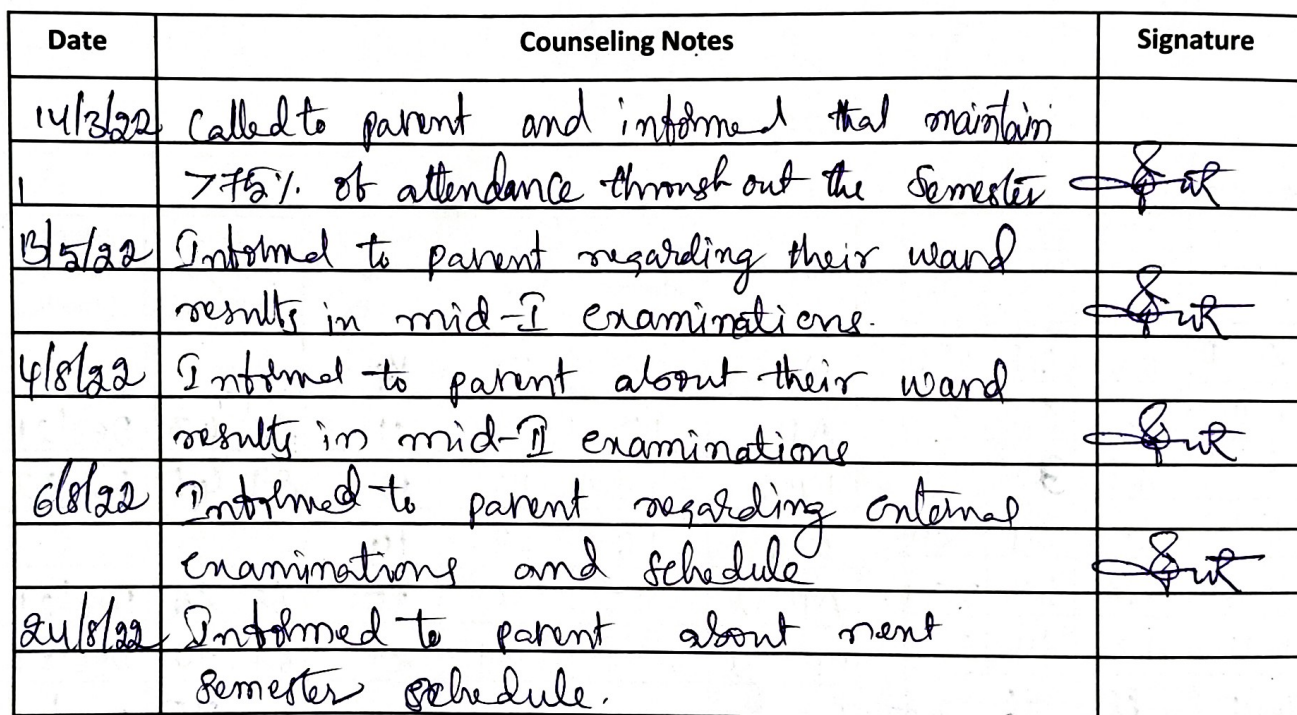 Date Counseling Notes Signature
14/3/22 Called to parent and informed that maintain
>75% of attendance through out the Semester
13/5/22 Informed to parent regarding their ward
results in mid-I examinations.
4/8/22 Informed to parent about their ward
results in mid-II examinations
6/8/22 Informed to parent regarding external
examinations and schedule
24/8/22 Informed to parent about next
Semester schedule.